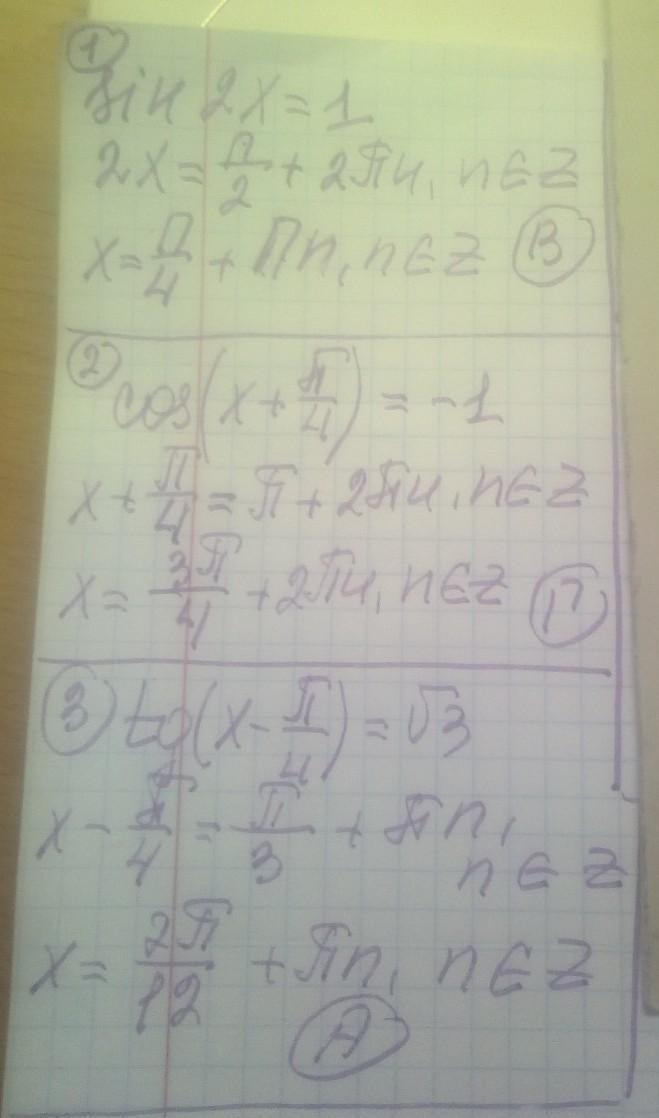 ① sin 2x = 1
2x = π/2 + 2πn, n ∈ Z
x = π/4 + πn, n ∈ Z Ⓑ
② cos(x + π/4) = -1
x + π/4 = π + 2πn, n ∈ Z
x = 3π/4 + 2πn, n ∈ Z Ⓖ
③ tg(x - π/4) = √3
x - π/4 = π/3 + πn,
n ∈ Z
x = 2π/12 + πn, n ∈ Z
Ⓐ